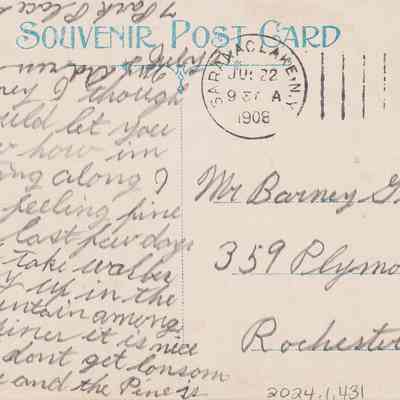 7 Park Place
SOUVENIR POST CARD
SARANAC LAKE, N.Y.
JUL 22
9 37 A
1908
ney I though
ould let you
w how im
ing along I
feeling fine
last few days
take walks
y up in the
untain among
it is nice
dont get lonsom
e and the Pine is
Mr Barney G
359 Plymo
Rochester
2024.1.431